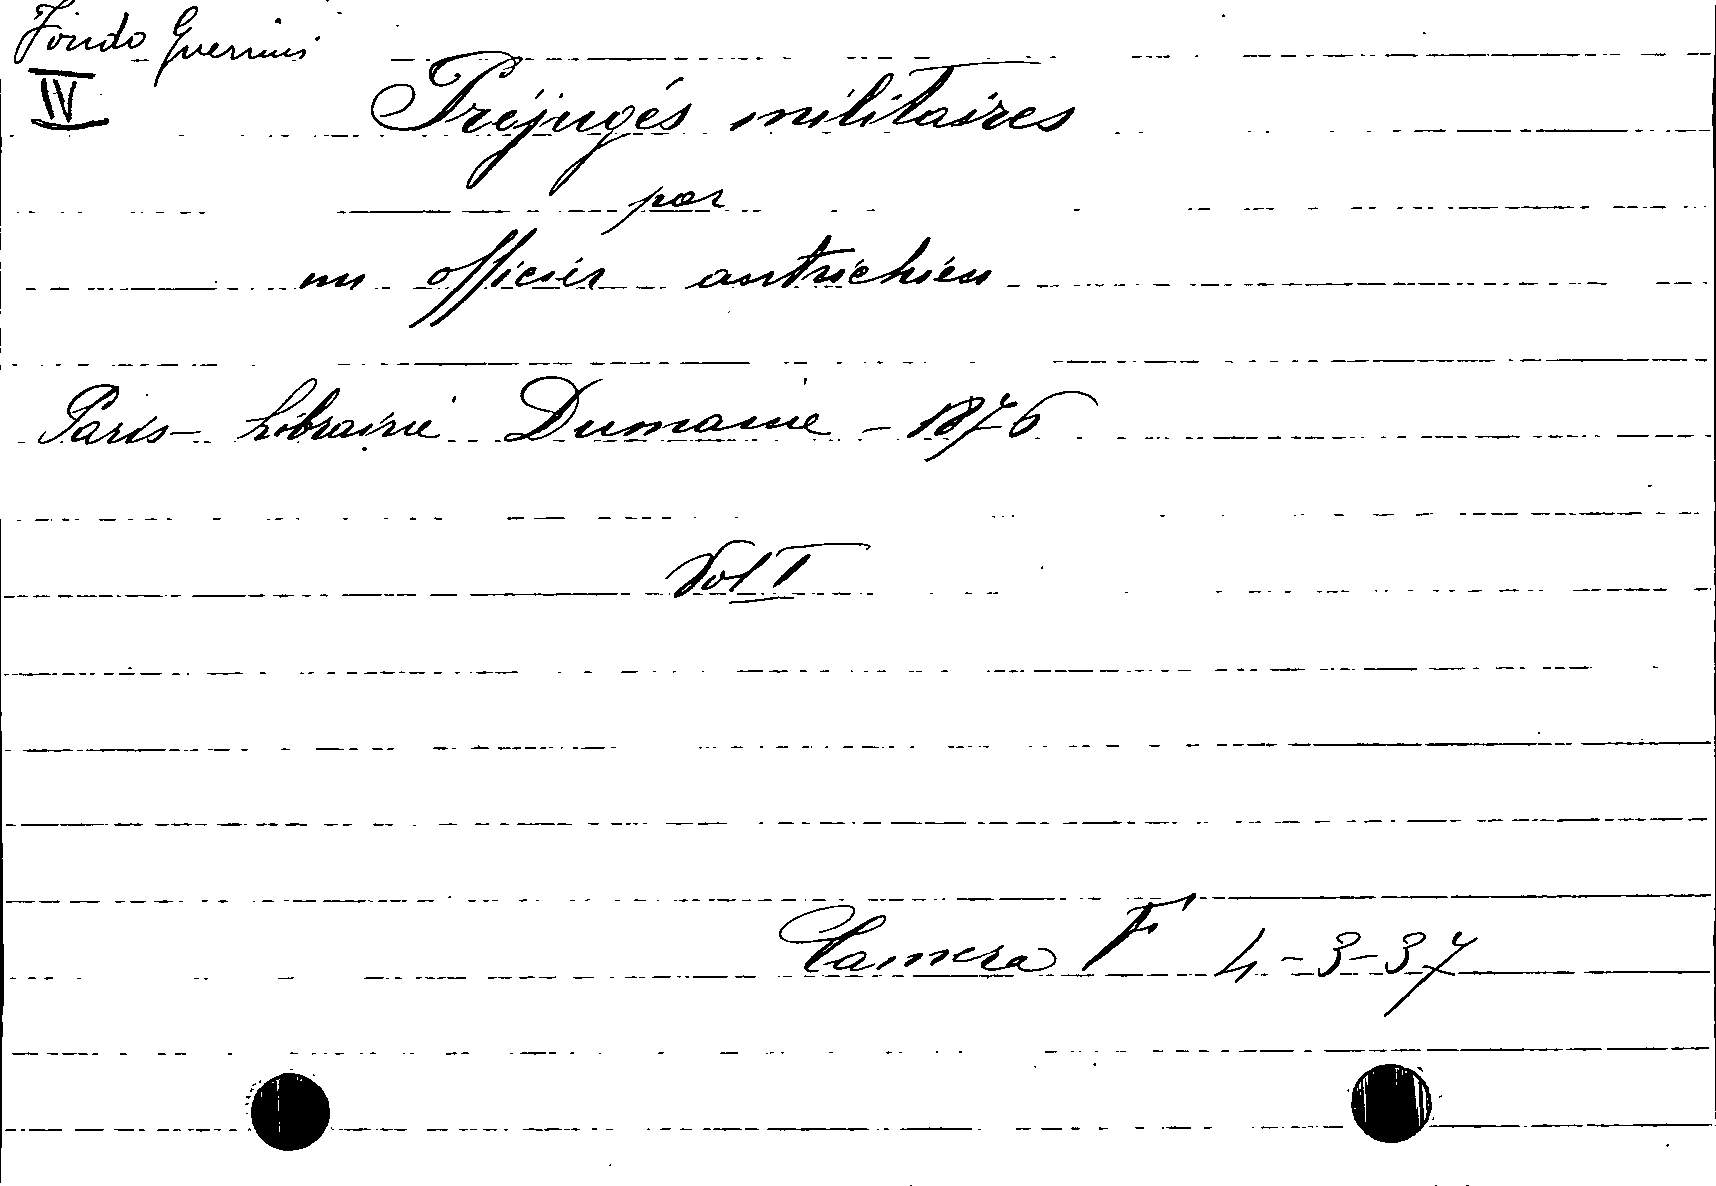 Fondo Guerrini
IV
Préjugés militaires
par
un officier autrichien
Paris - Librairie Dumaine - 1876
Vol I
Camera F 4-3-37